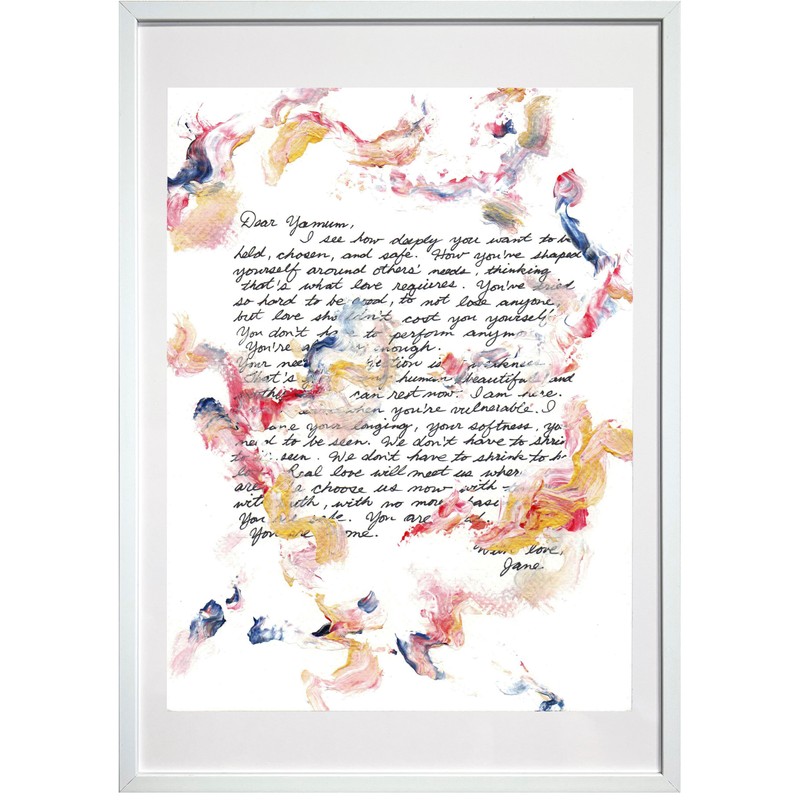 Dear Yamum,
I see how deeply you want to be
held, chosen, and safe. How you've shaped
yourself around others' needs, thinking
that's what love requires. You've tried
so hard to be good, to not lose anyone,
but love shouldn't cost you yourself.
You don't have to perform anymo
You're al enough.
Your nee is weakness
that's human beautiful and
can rest now. I am here.
when you're vulnerable. I
your longing, your softness, yo
need to be seen. We don't have to shrin
to seen. We don't have to shrink to b
Real love will meet us wher
are choose us now with
wit th, with no more
You are safe. You are
You are me.
With love,
Jane